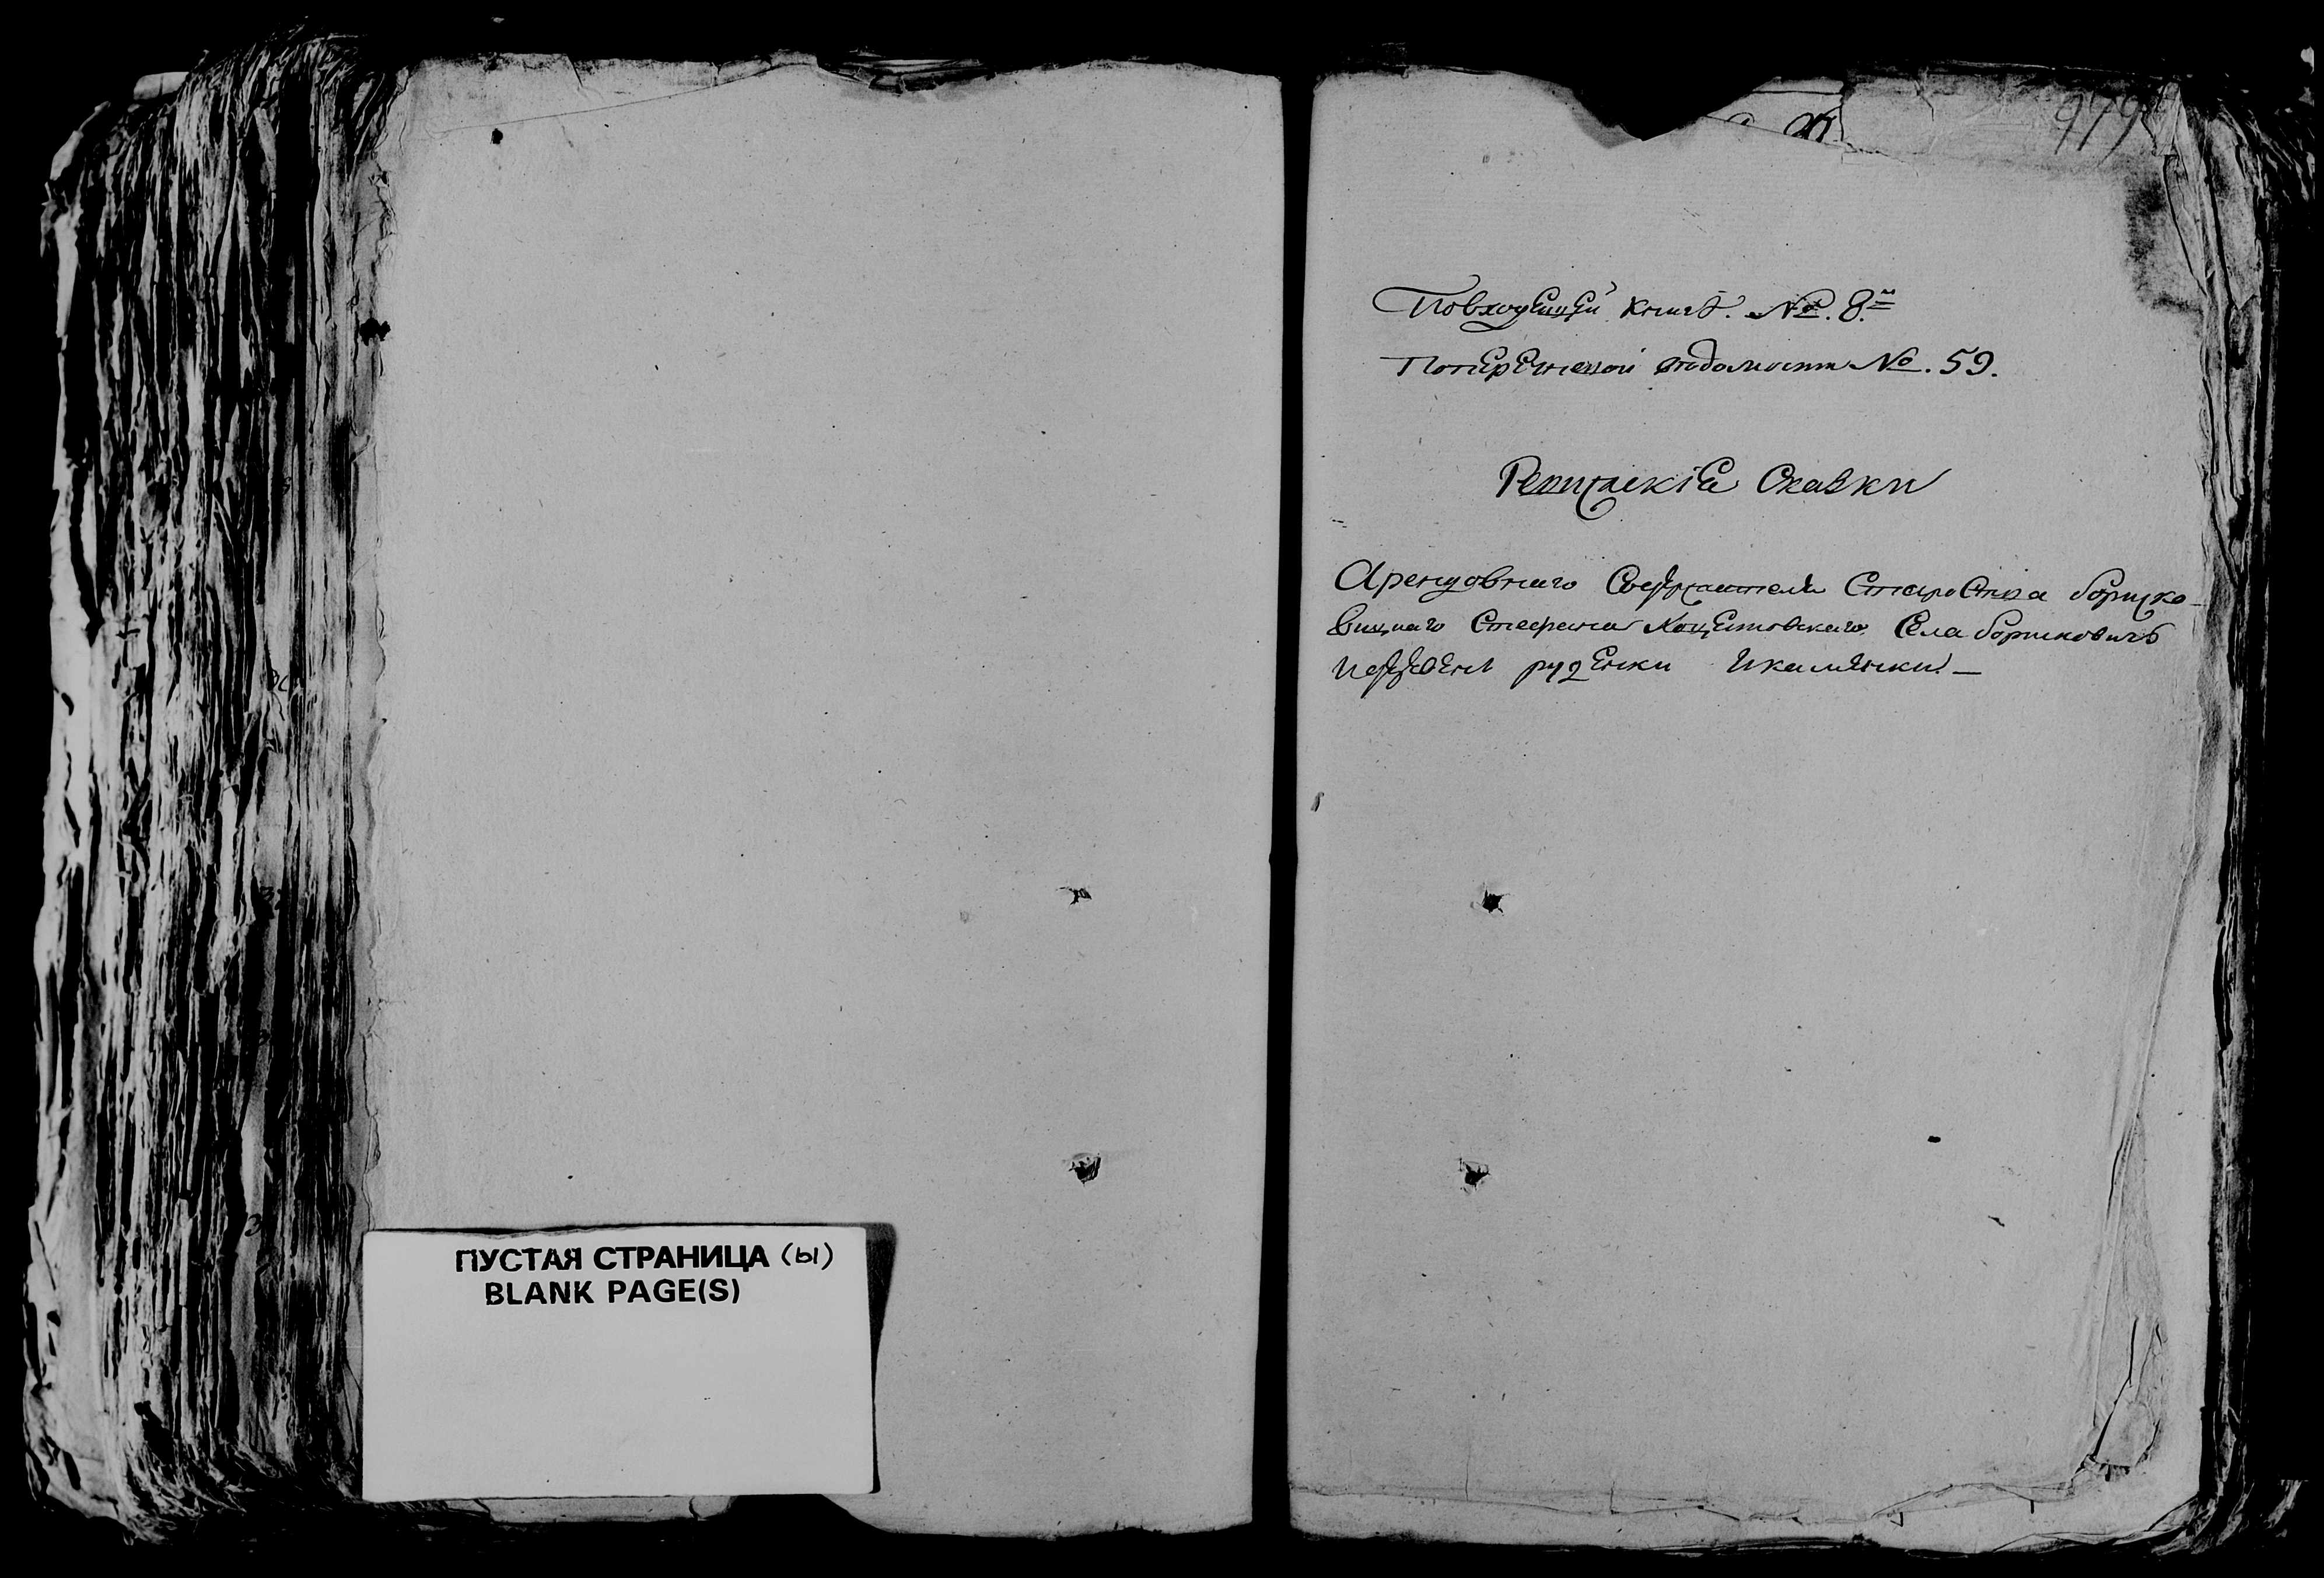 ПУСТАЯ СТРАНИЦА (ы)
BLANK PAGE(S)
979
Повходящей книгѣ. №. 8й
Поперечневой ведомости №. 59.
Ревижские Сказки
Арендовнаго Содержателя Староства борщко-
вицкаго Стефана Села борщковичъ
идеревень руденки икамянки. —